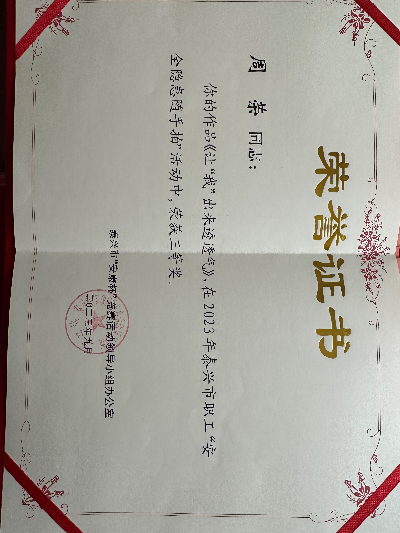 荣誉证书
周荣 同志：
你的作品《让“我”出来透透气》在2023年泰兴市职工“安
全隐患随手拍”活动中，荣获三等奖。
泰兴市“安康杯”竞赛活动领导小组办公室
二〇二三年九月